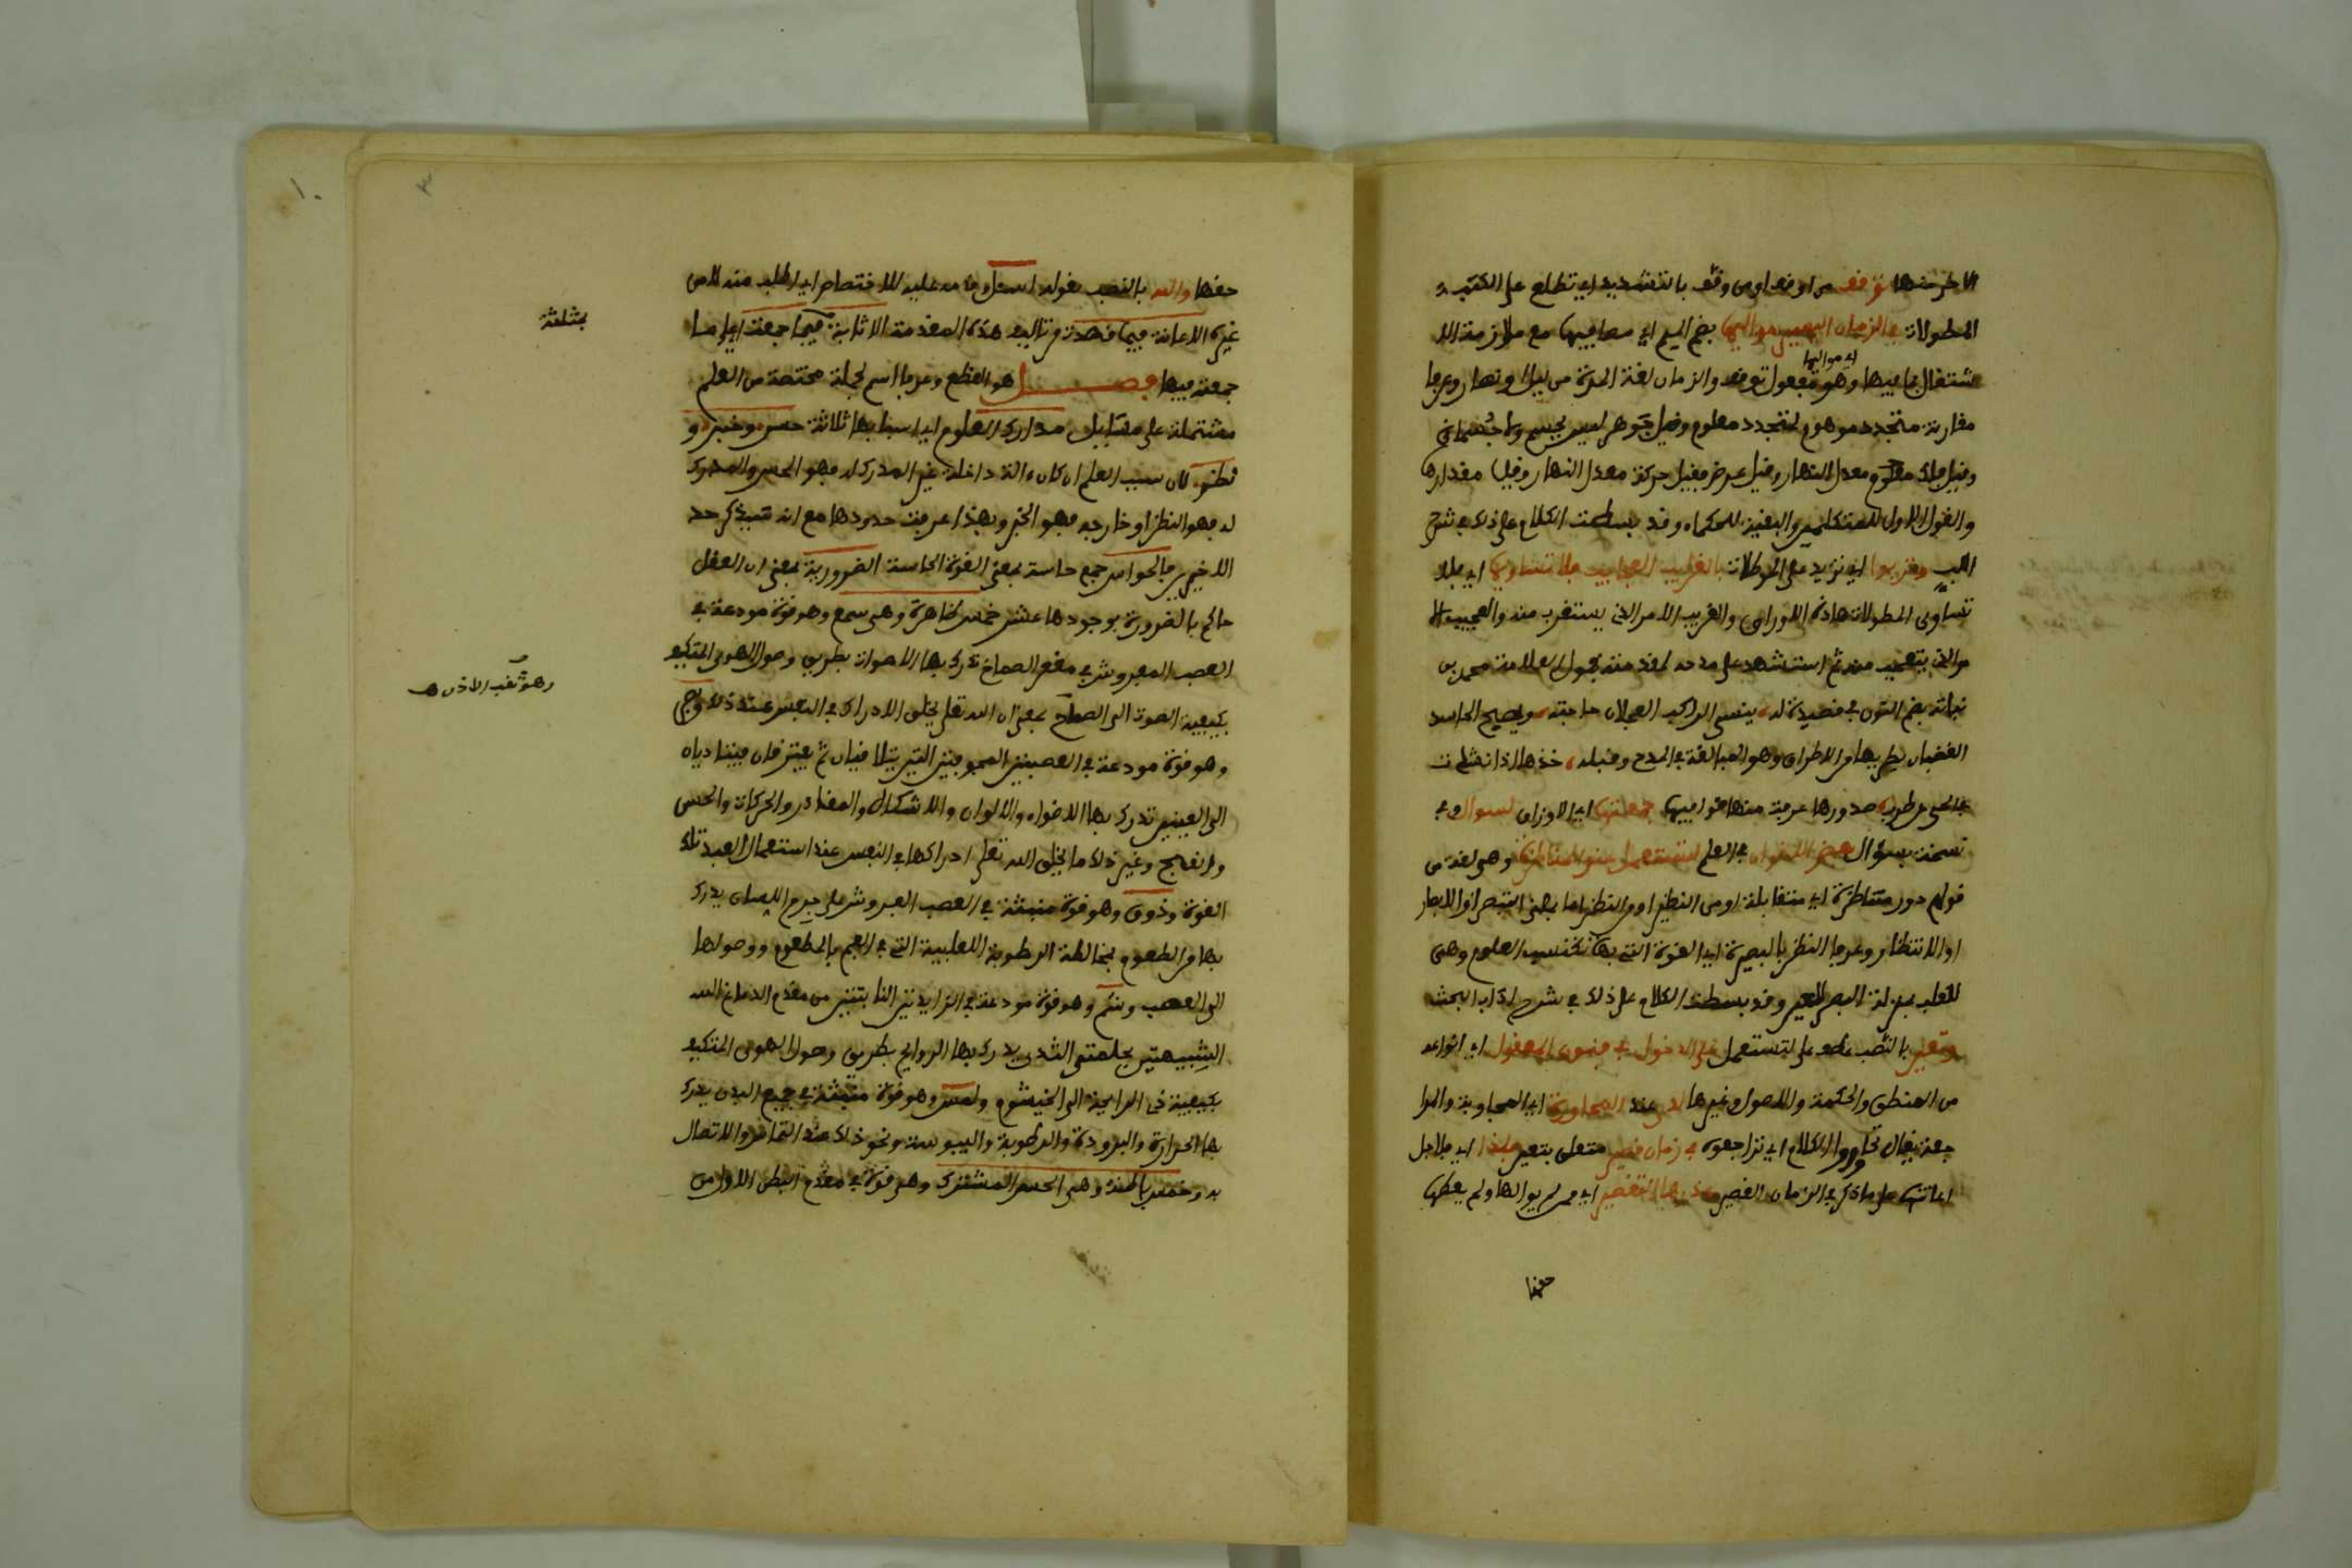 الاخر منها توقف من اوقف او من وقف بالتشديد اي تطلع على الكتب
المطولات في الزمان القصير مواليها بضم الميم اي مصافيها مع ملازمة الا
اي مواليها
شتغال بما فيها وهو مفعول توقف والزمان لغة المدة من ليل او نهار وعرفا
مقارنة متجدد موهوم لمتجدد معلوم وقيل جوهر ليس بجسم ولا جسماني
وقيل فلك معدل النهار وقيل عرض فقيل حركة معدل النهار وقيل مقدارها
والقول الاول للمتكلمين والبقية للحكماء وقد بسطت الكلام على ذلك في شرح
اللب وتربوا اي تزيد على المطولات بالغريب العجايب فلا تساوي اي فلا
تساوي المطولات هاذه الاوراق والغريب الامر الذي يستغرب منه والعجيب
الذي يتعجب منه ثم استشهد على مدحه لمقدمته بقول العلامة محمد بن
نباتة بضم النون في قصيدة له ينسى الراكب العجلان حاجته ويصبح الحاسد
الغضبان يطريها من الاطراء وهو المبالغة في المدح وقبله خذها اذا نشدت
في الحي من طرب صدورها عرفت منها قوافيها جمعتها اي الاوراق لسوال وفي
نسخة بسؤال بعض الاخوان في العلم لتستعمل مناظرة وهي لغة من
قولهم دور متناظرة اي متقابلة او من النظير او من النظر اما بمعنى التبصر او الابصار
او الانتظار وعرفا النظر بالبصيرة اي القوة التي بها تكتسب العلوم وهي
للقلب بمنزلة البصر للعين وقد بسطت الكلام على ذلك في شرح اداب البحث
وتعين بالنصب عطف على لتستعمل على الدخول في فنون المعقول اي انواعه
من المنطق والحكمة والاصول وغيرها عند المحاورة اي المجاوبة والمرا
جعة يقال تحاوروا الكلام اي تراجعوه في زمان قصير متعلق بتعين فلذا اي فلاجل
اعانتها على ما ذكر في الزمان القصير التقصير اي من لم يوالها ولم يعطها
حقها
حقها والله بالنصب بقوله اسأل وقدمه عليه للاختصاص اي اطلب منه لا من
غيره الاعانة فيما قصدت من تاليف هذه المقدمة الاثابة فيما جمعت اي على ما
جمعته فيها فصل هو القطع وعرفا اسم لجملة مختصة من العلم
مشتملة على مسايل مدارك العلوم اي اسبابها ثلاثة حس وخبر و
نظر لان سبب العلم ان كان ءالة داخلة غير المدرك له فهو الحس والمدرك
له فهو النظر او خارجه فهو الخبر وبهذا عرفت حدودها مع انه سيذكر حد
الاخيرين فالحواس جمع حاسة بمعنى القوة الحاسة الضرورية بمعنى ان العقل
حاكم بالضرورة بوجودها عشر خمس ظاهرة وهي سمع وهو قوة مودعة في
العصب المفروش في مقعر الصماخ تدرك بها الاصوات بطريق وصول الهوى المتكيف
بكيفية الصوت الى الصماخ بمعنى ان الله تعلى يخلق الادراك في النفس عند ذلك
وهو قوة مودعة في العصبتين المجوفتين التي يتلاقيان ثم يفترقان فيتاديان
الى العينين تدرك بها الاضواء والالوان والاشكال والمقادر والحركات والحسن
والقبح وغير ذلك ما يخلق الله تعلى ادراكها في النفس عند استعمال العبد تلك
القوة وذوق وهو قوة منبثة في العصب المفروش على جرم اللسان يدرك
بها الطعوم بمخالطة الرطوبة اللعابية التي في الفم بالمطعوم ووصولها
الى العصب وشم وهو قوة مودعة في الزايدتين النابتتين من مقدم الدماغ
الشبيهتين بحلمتي الثدي يدرك بها الروايح بطريق وصول الهوى المتكيف
بكيفية ذي الرايحة الى الخيشوم ولمس وهو قوة منبثة في جميع البدن يدرك
بها الحرارة والبرودة والرطوبة واليبوسة ونحو ذلك عند التماس والاتصال
به وخمس باطنة وهي الحس المشترك وهي قوة في مقدم البطن الاول من
بمثلثة
وهو ثقب الاذن